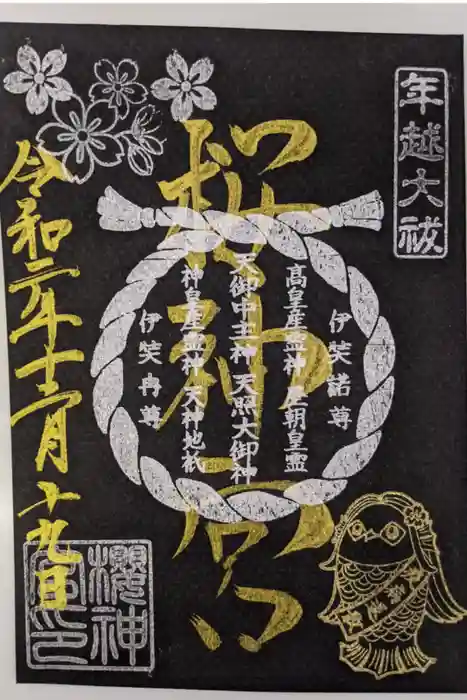 年越大祓
桜神宮
伊弉諾尊
高皇産霊神 歴朝皇霊
天御中主神 天照大御神
神皇産霊神 天神地祇
伊弉冉尊
令和二年十二月十九日
櫻神
宮印